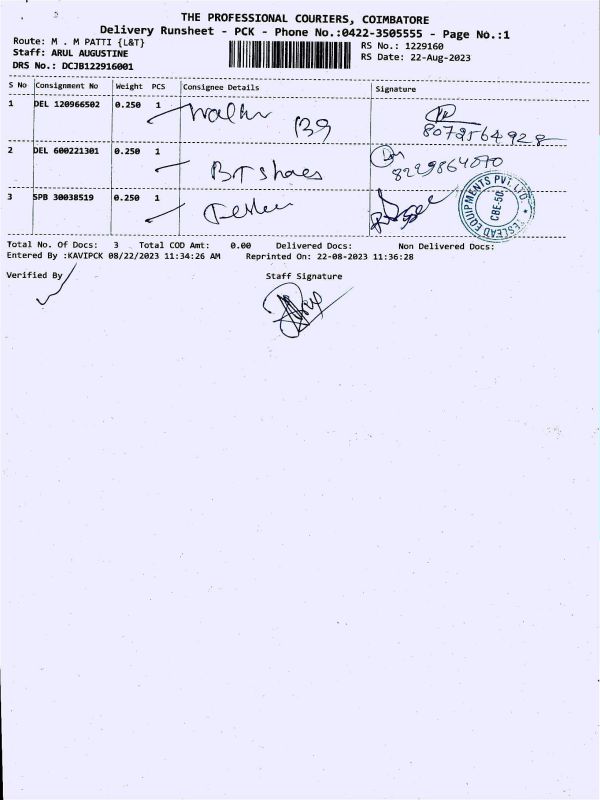 THE PROFESSIONAL COURIERS, COIMBATORE
Delivery Runsheet - PCK - Phone No.:0422-3505555 - Page No.:1
Route: M . M PATTI {L&T}
RS No.: 1229160
Staff: ARUL AUGUSTINE
RS Date: 22-Aug-2023
DRS No.: DCJB122916001
S No Consignment No Weight PCS Consignee Details Signature
1 DEL 120966502 0.250 1 139
8072564928
2 DEL 600221301 0.250 1 BT shoes
8229864070
3 SPB 30038519 0.250 1
EQUIPMENTS PVT. LTD.
CBE-50
Total No. Of Docs: 3 Total COD Amt: 0.00 Delivered Docs: Non Delivered Docs:
Entered By :KAVIPCK 08/22/2023 11:34:26 AM Reprinted On: 22-08-2023 11:36:28
Verified By Staff Signature